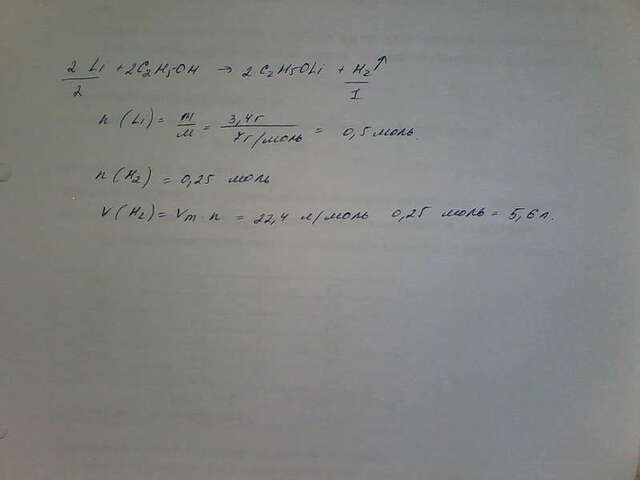 2 Li + 2C2H5OH → 2 C2H5OLi + H2↑
2 1
n (Li) = m/M = 3,4г / 7г/моль = 0,5 моль.
n (H2) = 0,25 моль
V (H2) = Vm · n = 22,4 л/моль 0,25 моль = 5,6 л.